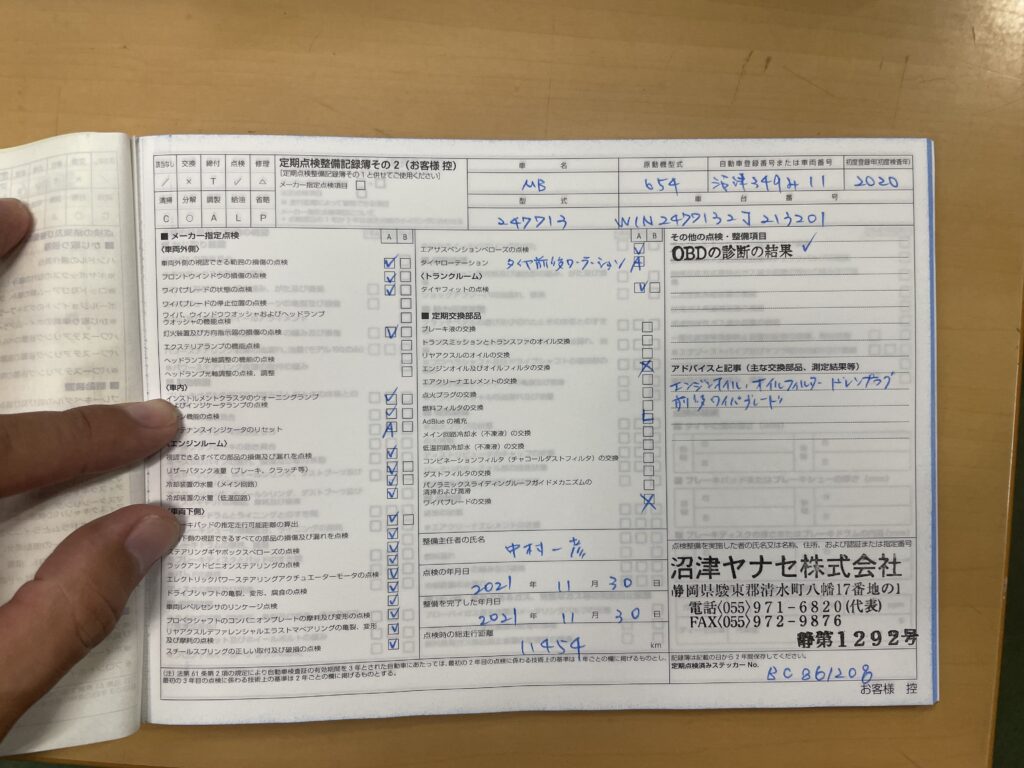 該当なし 交換 締付 点検 修理
／ × T ✓ △
清掃 分解 調整 給油 省略
C ○ A L P
定期点検整備記録簿その2(お客様 控)
[定期点検整備記録簿その1と併せてご使用ください]
メーカー指定点検項目 □
車 名 原動機型式 自動車登録番号または車両番号 初度登録年(初度検査年)
MB 654 沼津349み11 2020
型 式 車 台 番 号
247713 W1N2477132J213201
■ メーカー指定点検 A B
〈車両外側〉
車両外側の視認できる範囲の損傷の点検 ✓
フロントウインドウの損傷の点検 ✓
ワイパブレードの状態の点検 ✓
ワイパブレードの停止位置の点検
ワイパ、ウインドウウオッシャおよびヘッドランプ
ウオッシャの機能点検
灯火装置及び方向指示器の損傷の点検 ✓
エクステリアランプの機能点検
ヘッドランプ光軸調整の機能の点検
ヘッドランプ光軸調整の点検、調整
〈車内〉
インストルメントクラスタのウォーニングランプ
よびインジケータランプの点検 ✓
ン機能の点検 ✓
テナンスインジケータのリセット A
〈エンジンルーム〉
視認できるすべての部品の損傷及び漏れを点検 ✓
リザーバタンク液量(ブレーキ、クラッチ等) ✓
冷却装置の水量(メイン回路) ✓
冷却装置の水量(低温回路) ✓
〈車両下側〉
ーキパッドの推定走行可能距離の算出 ✓
下側の視認できるすべての部品の損傷及び漏れを点検 ✓
ステアリングギヤボックスベローズの点検 ✓
ラックアンドピニオンステアリングの点検 ✓
エレクトリックパワーステアリングアクチュエーターモータの点検 ✓
ドライブシャフトの亀裂、変形、腐食の点検 ✓
車両レベルセンサのリンケージ点検 ✓
プロペラシャフトのコンパニオンプレートの摩耗及び変形の点検 ✓
リヤアクスルデファレンシャルエラストマベアリングの亀裂、変形
及び摩耗の点検 ✓
スチールスプリングの正しい取付及び破損の点検 ✓
A B
エアサスペンションベローズの点検 ✓
タイヤローテーション タイヤ前後ローテーション A
〈トランクルーム〉
タイヤフィットの点検 ✓
■ 定期交換部品
ブレーキ液の交換
トランスミッションとトランスファのオイル交換
リヤアクスルのオイルの交換
エンジンオイル及びオイルフィルタの交換 ×
エアクリーナエレメントの交換
点火プラグの交換
燃料フィルタの交換
AdBlue の補充 L
メイン回路冷却水(不凍液)の交換
低温回路冷却水(不凍液)の交換
コンビネーションフィルタ(チャコールダストフィルタ)の交換
ダストフィルタの交換
パノラミックスライディングルーフガイドメカニズムの
清掃および潤滑
ワイパブレードの交換 ×
整備主任者の氏名
中村一彦
点検の年月日
2021 年 11 月 30 日
整備を完了した年月日
2021 年 11 月 30 日
点検時の総走行距離
11454 km
その他の点検・整備項目
OBDの診断の結果 ✓
アドバイスと記事(主な交換部品、測定結果等)
エンジンオイル、オイルフィルター ドレンプラグ
前後ワイパブレード
点検整備を実施した者の氏名又は名称、住所、および認証または指定番号
沼津ヤナセ株式会社
静岡県駿東郡清水町八幡17番地の1
電話(055)971-6820(代表)
FAX(055)972-9876
静第1292号
記録簿は記載の日から2年間保存してください。
定期点検済みステッカー No.
BC861208
(注)法第61条第2項の規定により自動車検査証の有効期間を3年とされた自動車にあたっては、最初の2年目の点検に係わる技術上の基準は1年ごとの欄に掲げるものとし、
最初の3年目の点検に係わる技術上の基準は2年ごとの欄に掲げるものとする。
お客様 控